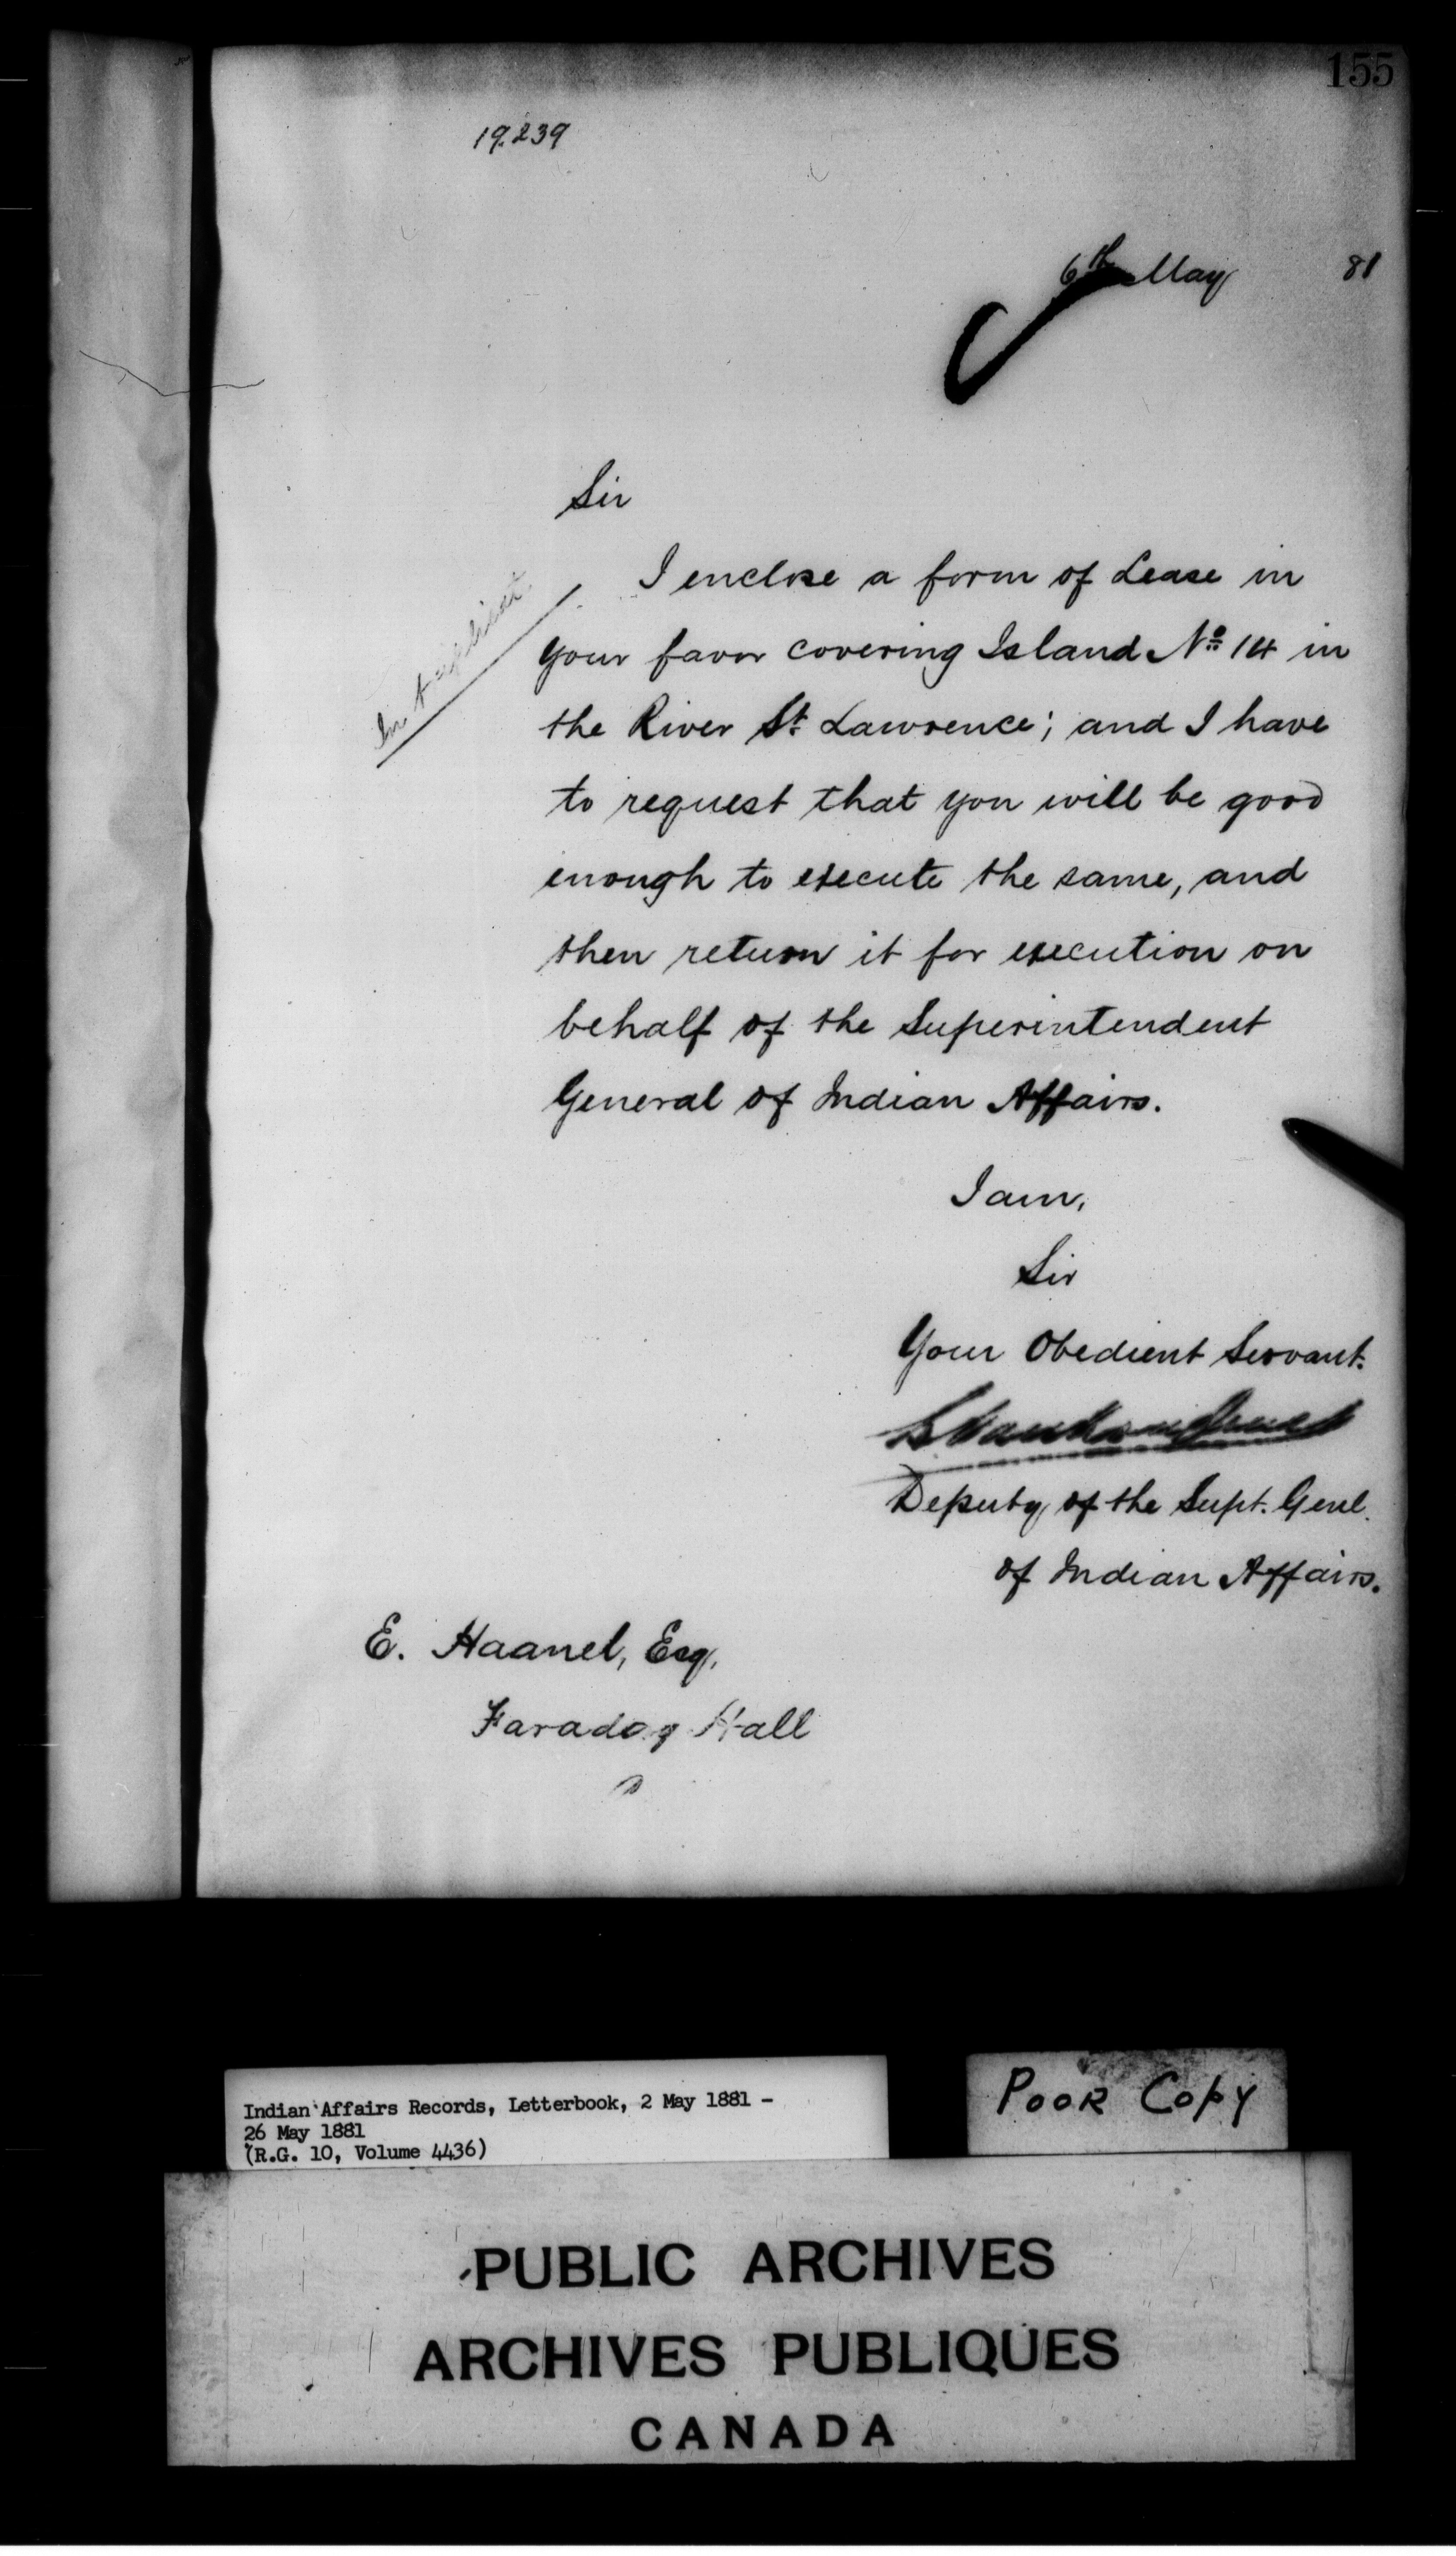 155
19.239
6th May 81
Sir
In
I enclose a form of Lease in
your favor covering Island No 14 in
the River St. Lawrence; and I have
to request that you will be good
enough to execute the same, and
then return it for execution on
behalf of the Superintendent
General of Indian Affairs.
I am,
Sir
Your Obedient Servant.
Deputy of the Supt. Genl.
of Indian Affairs.
E. Haanel, Esq.
Faraday Hall
Indian Affairs Records, Letterbook, 2 May 1881 -
26 May 1881
(R.G. 10, Volume 4436)
Poor Copy
PUBLIC ARCHIVES
ARCHIVES PUBLIQUES
CANADA